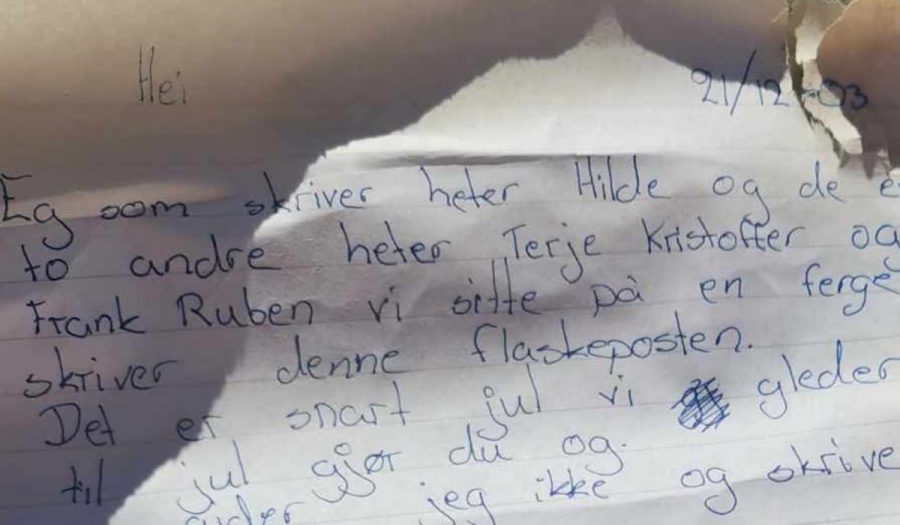 Hei 21/12-03
Eg som skriver heter Hilde og de e
to andre heter Terje Kristoffer og
Frank Ruben vi sitte på en ferge
skriver denne flaskeposten.
Det er snart jul vi gleder
til jul gjør du og.
jeg ikke og skrive